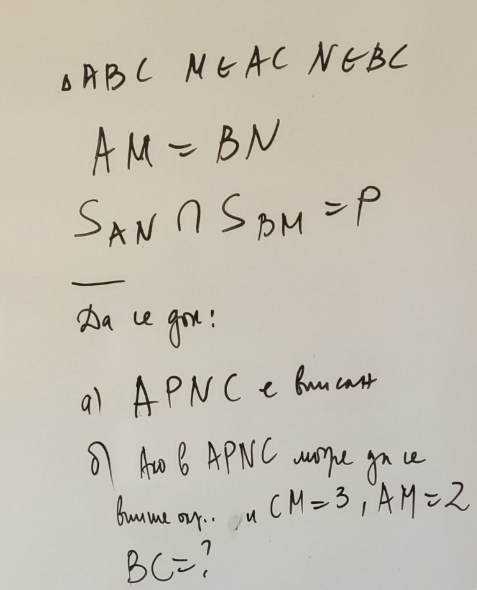 △ABC M∈AC N∈BC
AM = BN
S_AN ∩ S_BM = P
Да се док:
а) APNC е вписан
б) Ако в APNC може да се
впише окр.. и CM=3, AM=2
BC=?